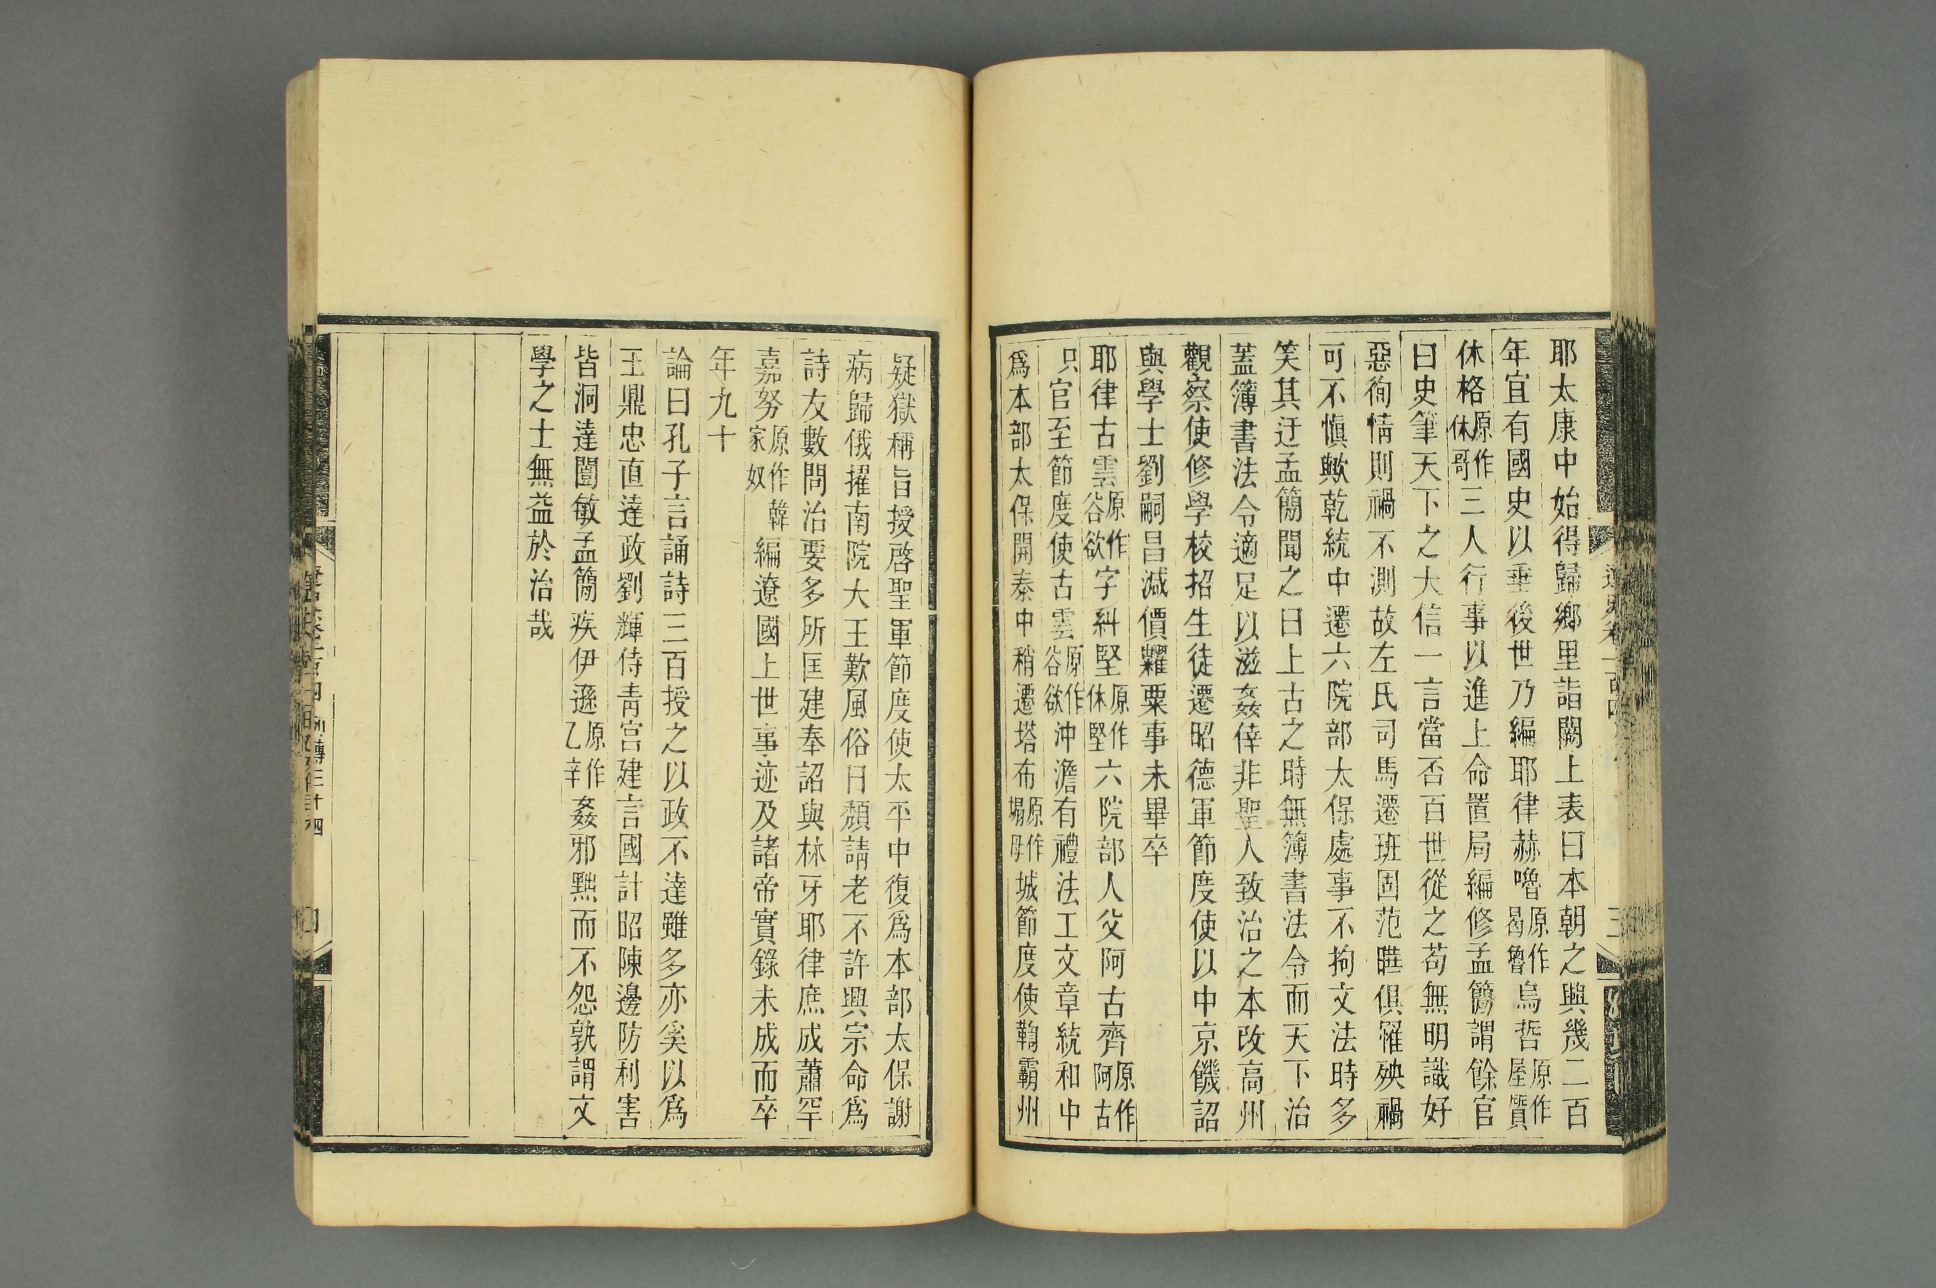 耶太康中始得歸鄉里詣闕上表曰本朝之興幾二百
年宜有國史以垂後世乃編耶律赫嚕原作曷魯烏哲原作屋質
休格原作休哥三人行事以進上命置局編修孟簡謂餘官
曰史筆天下之大信一言當否百世從之苟無明識好
惡徇情則禍不測故左氏司馬遷班固范曄俱罹殃禍
可不慎歟乾統中遷六院部太保處事不拘文法時多
笑其迂孟簡聞之曰上古之時無簿書法令而天下治
蓋簿書法令適足以滋姦倖非聖人致治之本改高州
觀察使修學校招生徒遷昭德軍節度使以中京饑詔
與學士劉嗣昌減價糶粟事未畢卒
耶律古雲原作谷欲字糾堅原作休堅六院部人父阿古齊原作阿古
只官至節度使古雲原作谷欲沖澹有禮法工文章統和中
爲本部太保開泰中稍遷塔布原作塌母城節度使鞫霸州
疑獄稱旨授啓聖軍節度使太平中復爲本部太保謝
病歸俄擢南院大王歎風俗日頹請老不許興宗命爲
詩友數問治要多所匡建奉詔與林牙耶律庶成蕭罕
嘉努原作韓家奴編遼國上世事迹及諸帝實錄未成而卒
年九十
論曰孔子言誦詩三百授之以政不達雖多亦奚以爲
王鼎忠直達政劉輝侍青宮建言國計昭陳邊防利害
皆洞達闓敏孟簡疾伊遜原作乙辛姦邪黜而不怨孰謂文
學之士無益於治哉